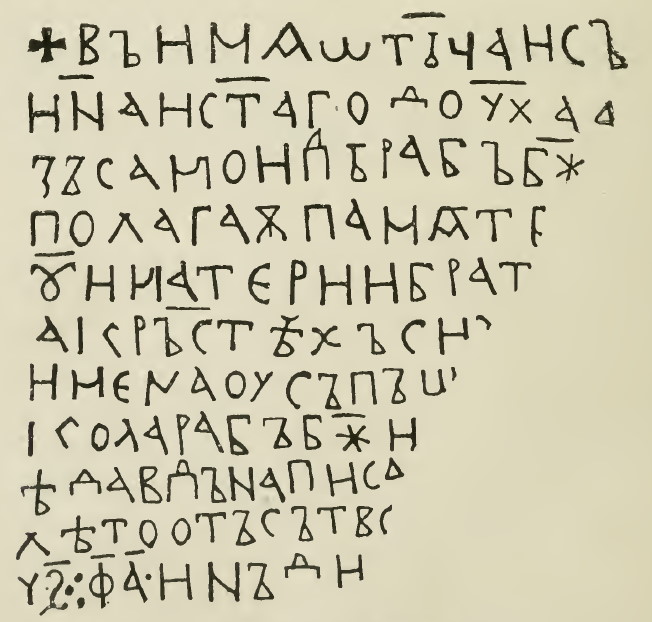 ✚ВЪНМѦѠТІЧАНСЪ
НNАНСТАГОДОУХАА
ЗЪСАМОНДЪРАБЪБЖ
ПОЛАГАѪПАМѦТЕ
ꙊНМАТЕРННБРАТ
АІКРЪСТѢХЪСН
НМЕNАОУСЪПЪШ
ІКОЛАРАБЪБЖН
ѢДАВДЪNАПНСА
ЛѢТООТЪСЪТВС
УЅ:ФА·НNЪДН